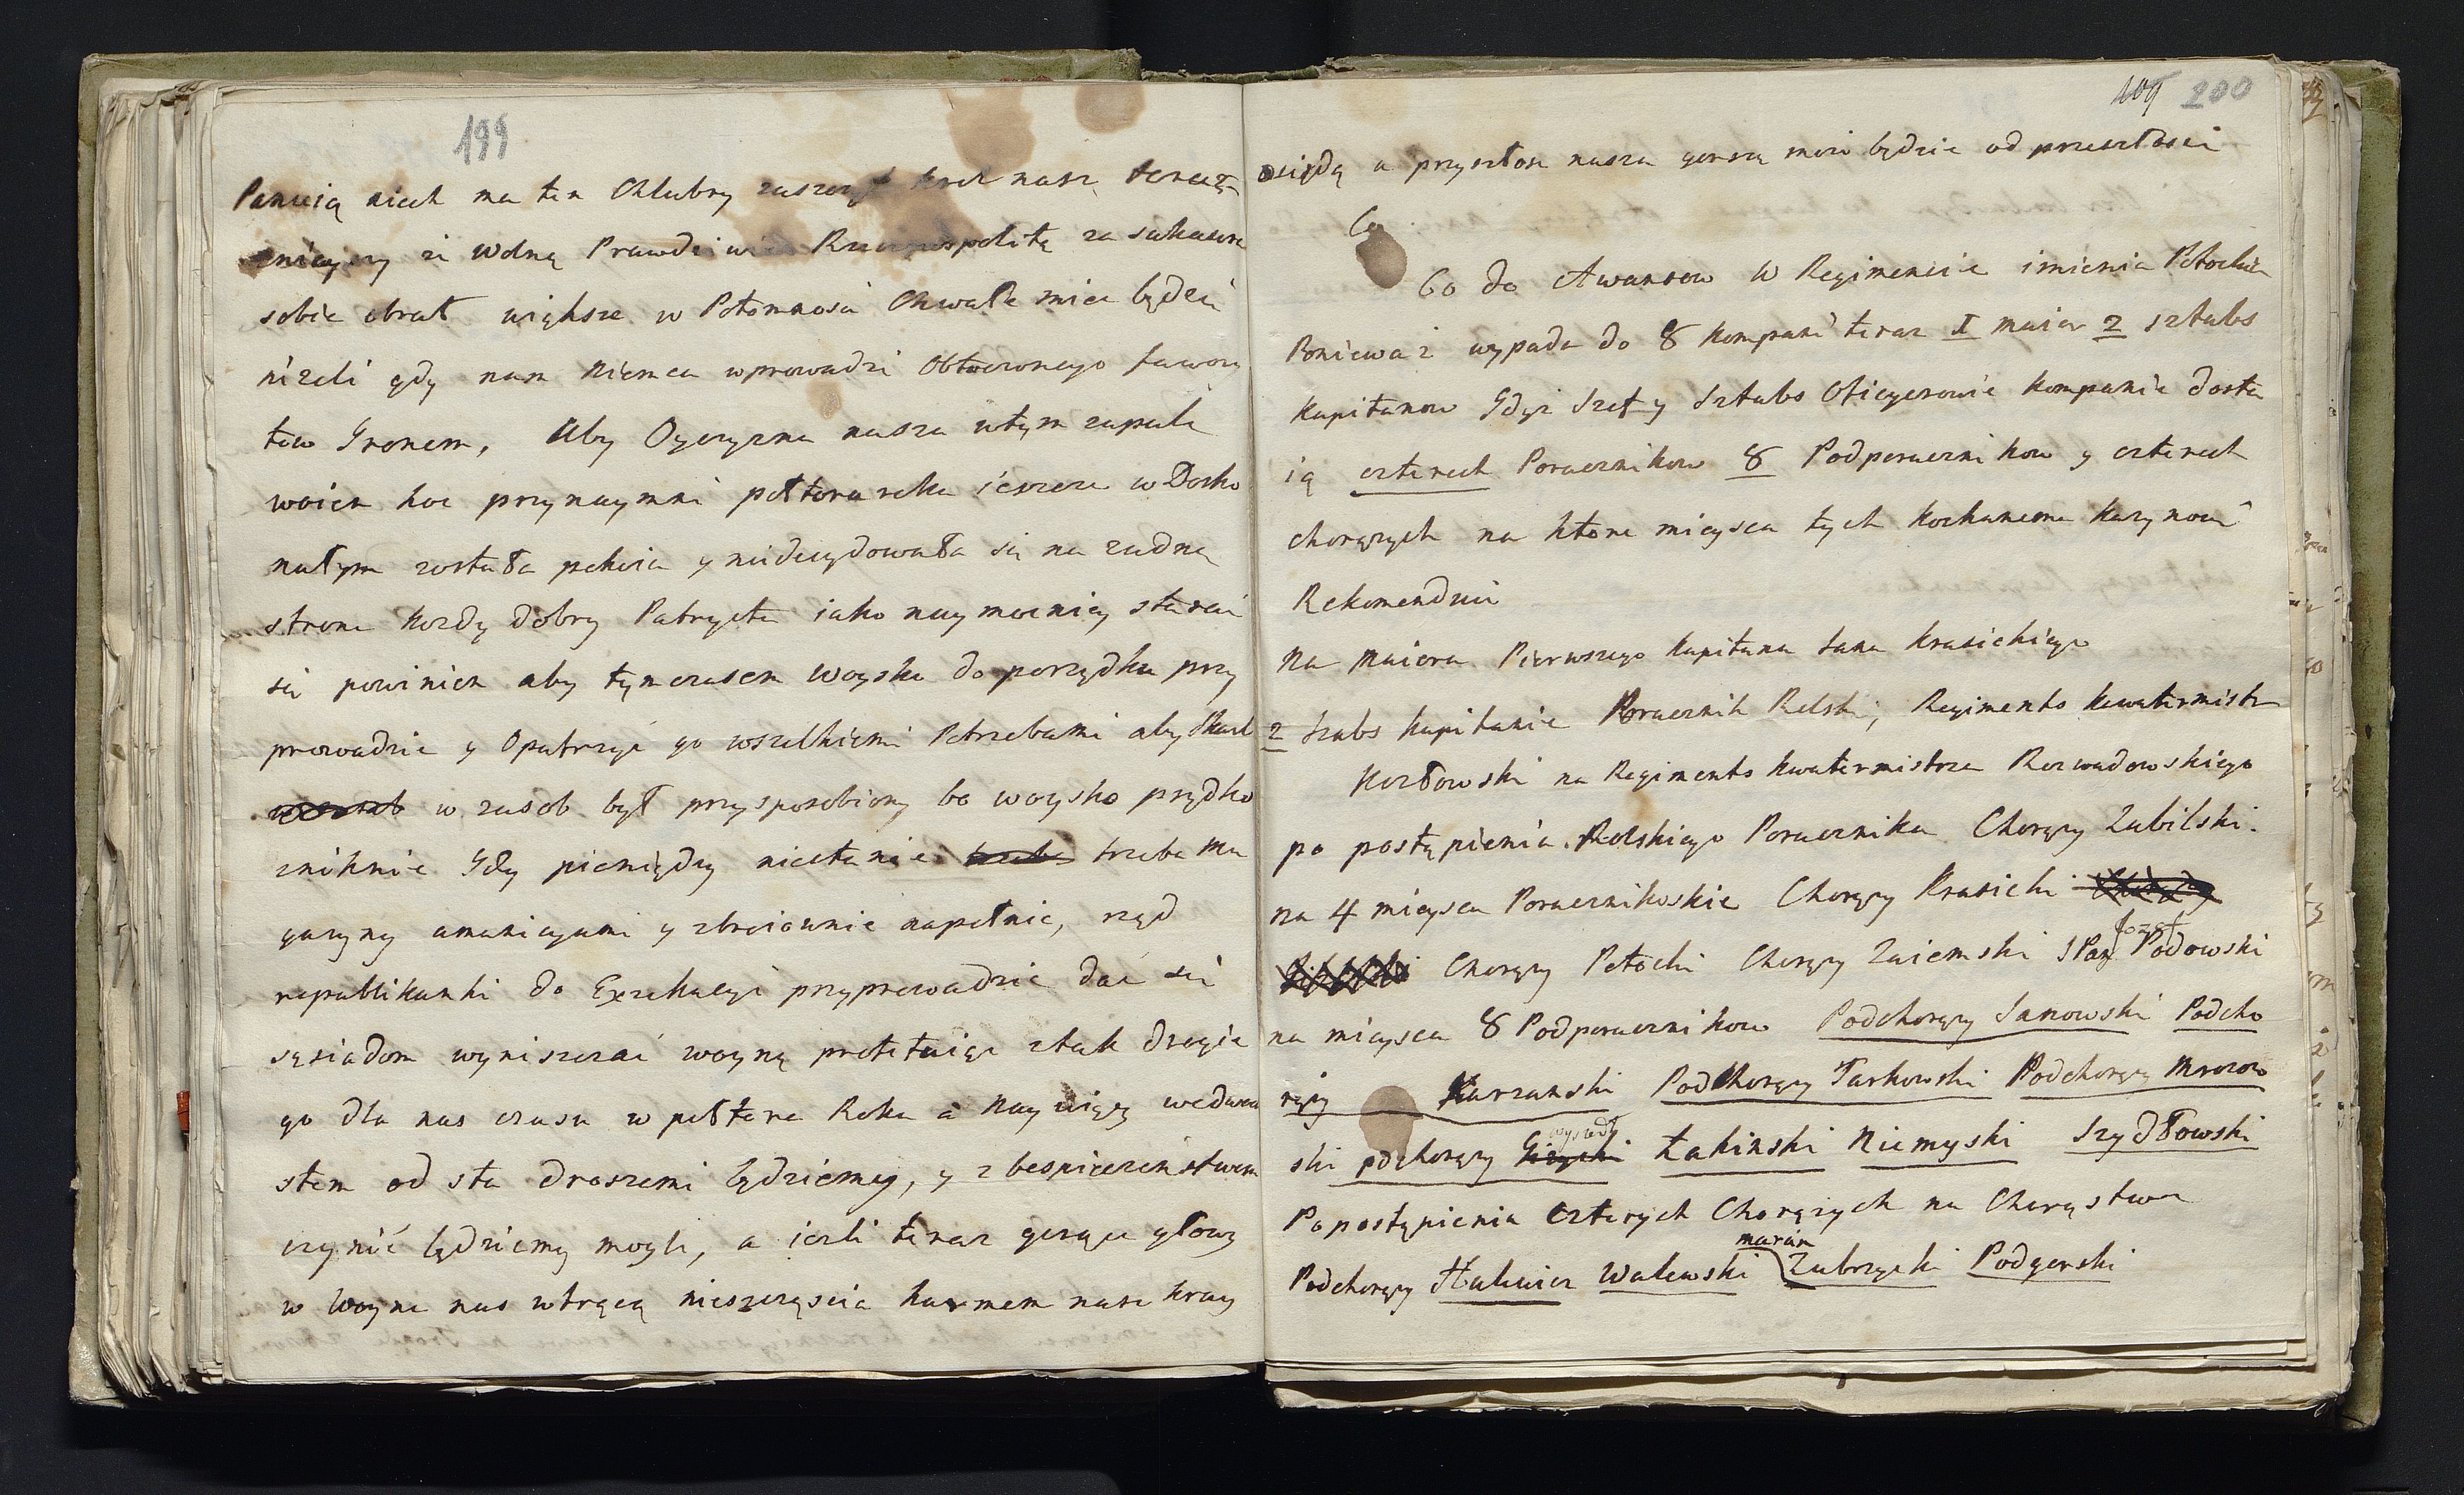 199
Panuią niech ma ten Chlubny zaszczyt Krol nasz teraz
nieyszy że wolną Prawdziwie Rzeczpospolitą za sukcesora
sobie obrał większe w Potomnosci Chwałe miec będzie
niżeli gdy nam Niemca wprowadzi Obtoczonego fawory
tow Gronem, Aby Oyczyzna nasza wtym zapale
woien hoc przynaymni pułtora roku ieszcze w Dosko
nałym została pokoiu y niedecydowała się na żadną
strone każdy dobry Patryota iako naymocniey starać
się powinien aby tymczasem woysko do porządku przy
prowadzic y Opatrzyć go wszelkiemi Potrzebami aby Skarb
w zasob był przysposobiony bo woysko prędko
zniknie Gdy pieniędzy niestanie trzeba trzeba Ma
gazyny amunicyami y zbroiownie napełnic, rząd
republikanki do Exzekucyi przyprowadzic dac się
sąsiadom wyniszczać woyną profituiąc ztak drogie
go dla nas czasu w pułtora Roku a nay więcy wedwu
stem od sta droższemi będziemy, y z bespieczenstwem
czynić będziemy mogli, a iezli teraz gorące głowy
w Woyne nas wtrącą nieszczęscia karmem nasz kray
109 200
osiędą a przyszłosc nasza gorszą może będzie od przeszłosci
Co
Co do Awansow w Regimencie imienia Potockich
Poniewaz wypada do 8 kompanii teraz I maior 2 sztabs
Kapitanow Gdyż Szef y Sztabs Oficyerowie kompanie dosta
ią czterech Poruczników 8 Podporucznikow y czterech
chorązych na ktore mieysca tych Kochanemu Kuzynowi
Rekomenduie
Na Maiora Pierwszego Kapitana Jana Krasickiego
2 Szabs Kapitanie Porucznik Rolski, Regiments Kwatermistr
Kozłowski na Regiments Kwatermistrza Rozwadowskiego
po postąpieniu Rolskiego Porucznika Chorąży Zubilski.
na 4 mieysca Porucznikoskie Chorąży Krasicki
Chorąży Potocki Chorąży Zaiemski J Pan Jozef Podowski
na mieysca 8 Podporucznikow Podchorązy Janowski Podcho
rązy Karzanski Podchorązy Tarkowski Podchorązy Mrozow
ski podchorązy Giżycki wyszedł Łakinski Niemyski Szydłowski
Po postąpieniu Czterych Chorązych na Chorąstwa
Podchorązy Hakiwicz Walewski maran Zubrzycki Podgorski